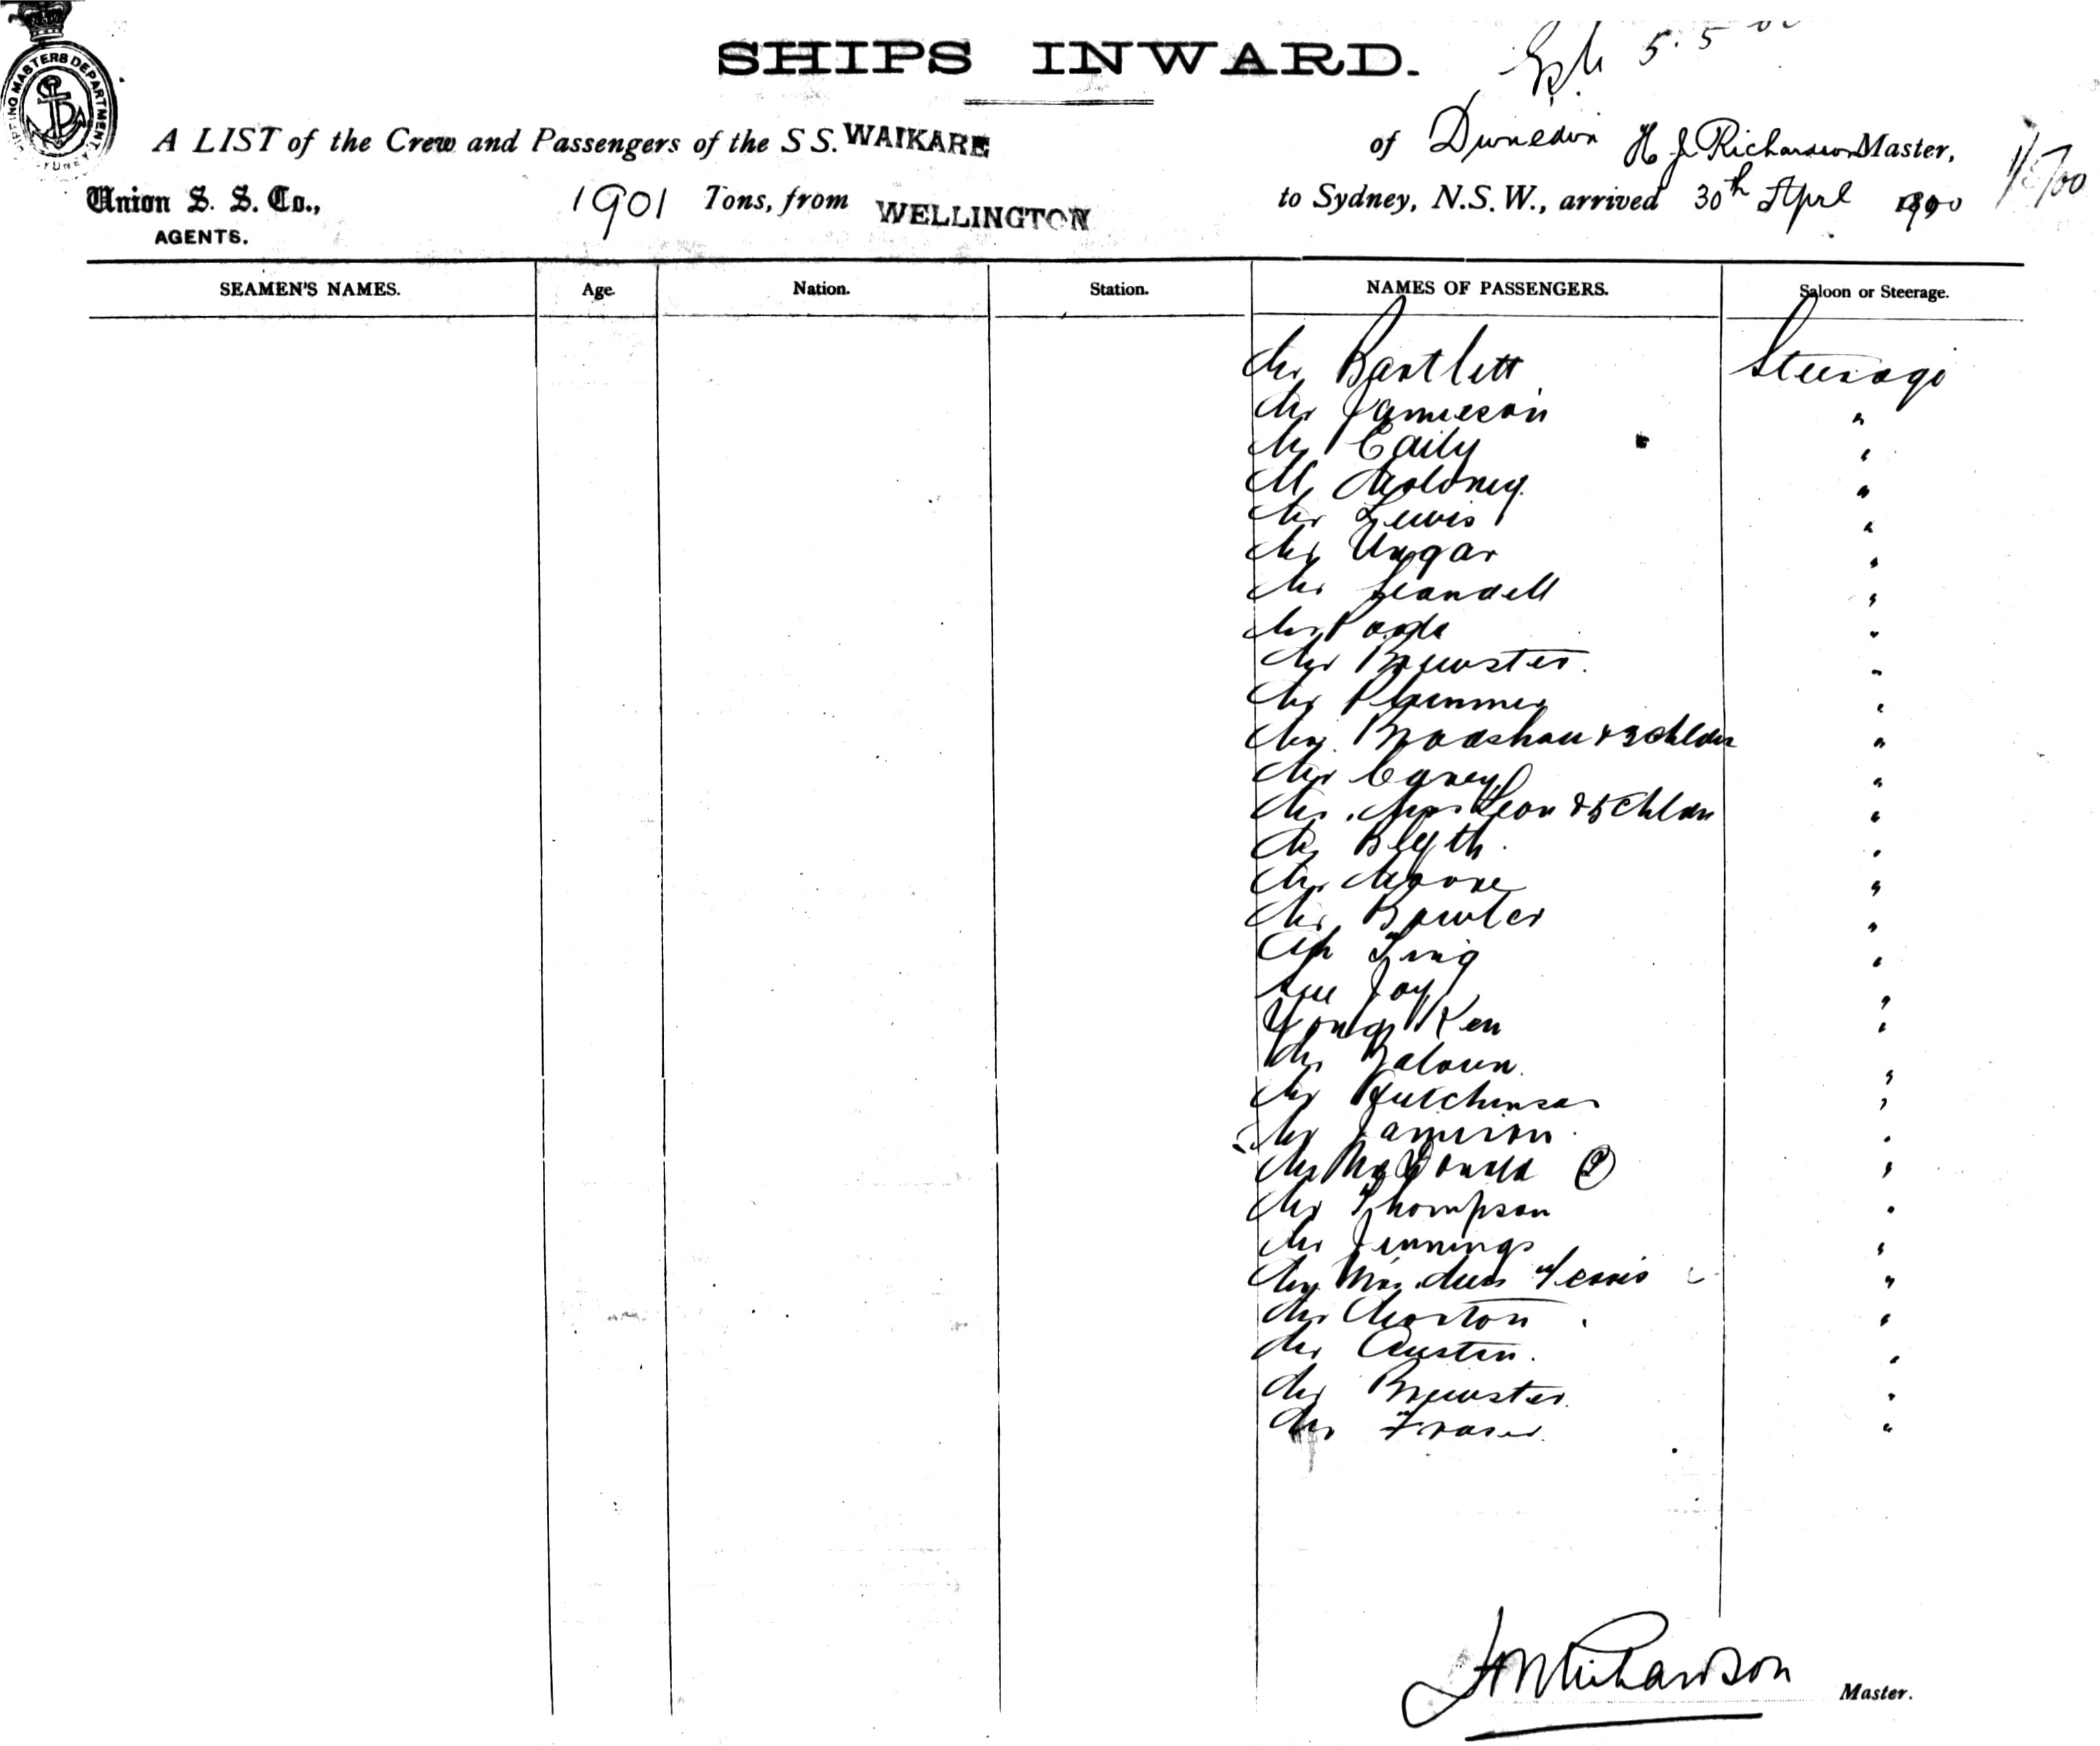 SHIPS INWARD.
5.5.00
SHIPPING MASTERS DEPARTMENT
A LIST of the Crew and Passengers of the S S. WAIKARE of Dunedin H J Richardson Master,
Union S. S. Co., 1901 Tons, from WELLINGTON to Sydney, N.S.W., arrived 30th April 1900
1/5/00
AGENTS.
SEAMEN'S NAMES. Age. Nation. Station. NAMES OF PASSENGERS. Saloon or Steerage.
Mr Bartlett Steerage
Mr Jamieson "
Mr Caily "
Mr Moloney "
Mr Lewis "
Mr Ungar "
Mr Leandell "
Mr "
Mr Brewster "
Mr Plummer "
Mrs Bradshaw & 3 Chldn "
Mr Carey "
Mr Mrs Leon & 5 Chldn "
Mr Blyth "
Mr Moore "
Mr Bowler "
Ah Ting "
Sue Joy "
Yong Ken "
Mr
Mr Hutchinson "
Mr Jamison "
Mr McDonald "
Mr Thompson "
Mr Jennings "
Mr Mrs "
Mr Morton "
Mr Austin "
Mr Brewster "
Mr Fraser "
Richardson Master.